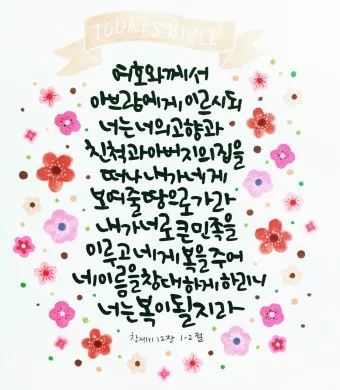 TODAY'S BIBLE
여호와께서
아브람에게 이르시되
너는 너의 고향과
친척과 아버지의 집을
떠나 내가 네게
보여 줄 땅으로 가라
내가 너로 큰 민족을
이루고 네게 복을 주어
네 이름을 창대하게 하리니
너는 복이 될지라
창세기 12장 1-2절